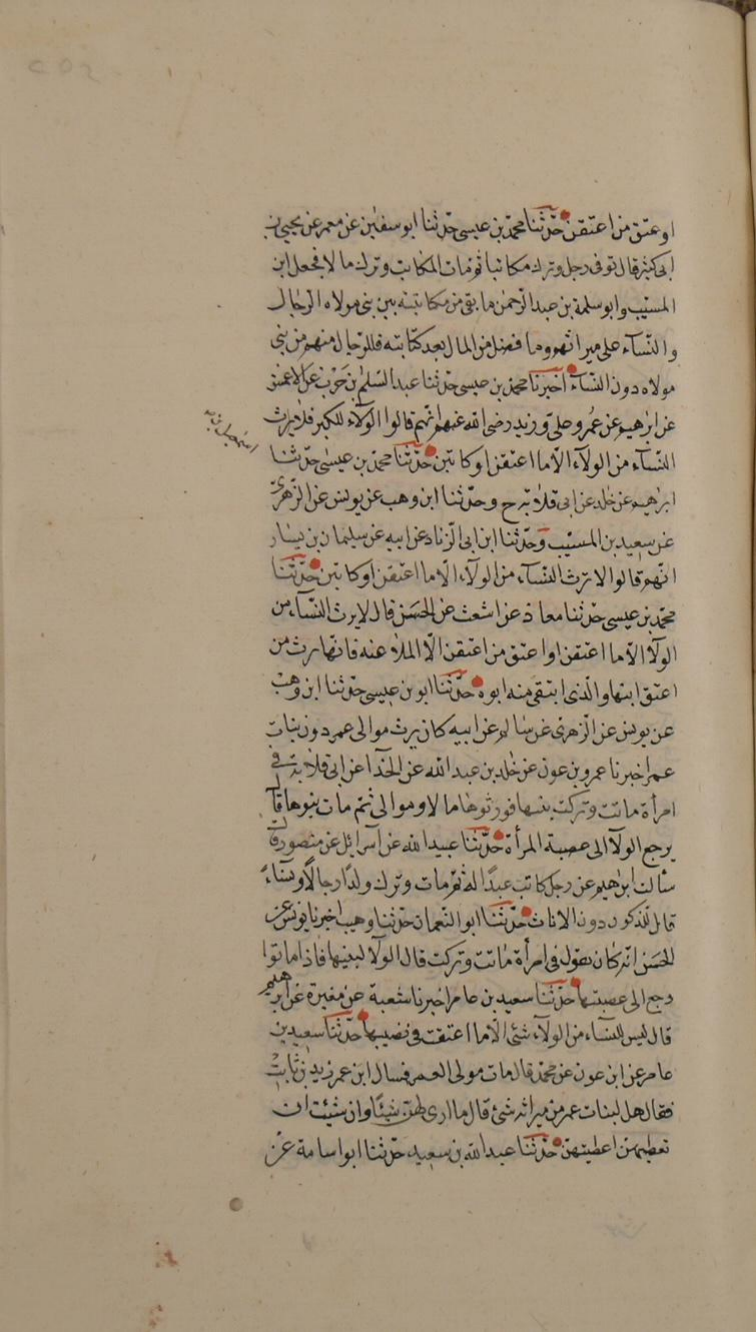 او عتق من اعتقن حدّثنا محمد بن عيسى حدّثنا ابو سفيٰن عن معمر عن يحيى بن
ابى كثير قال توفى رجل وترك مكاتبا ثم مات المكاتب وترك مالا فجعل ابن
المسيّب وابو سلمة بن عبد الرّحمٰن ما بقى من مكاتبته بين بنى مولاه الرّجال
والنّسآء على ميراثهم وما فضل من المال بعد كتابته فللرّجال منهم من بنى
مولاه دون النّسآء اخبرنا محمد بن عيسى حدّثنا عبد السّلٰم بن حرب عن الاعمش
عن ابرٰهيم عن عمر وعلى وزيد رضى الله عنهم انّهم قالوا الولآء للكبر فلا يرث
النّسآء من الولآء الّا ما اعتقن او كاتبن حدّثنا محمد بن عيسى حدّثنا
ابرٰهيم عن خٰلد عن ابى قلابة ح وحدّثنا ابن وهب عن يونس عن الزّهرىّ
عن سعيد بن المسيّب وحدّثنا ابن ابى الزّناد عن ابيه عن سليمان بن يسار
انّهم قالوا لا يرث النّسآء من الولآء الّا ما اعتقن او كاتبن حدّثنا
محمد بن عيسى حدّثنا معاذ عن اشعث عن الحسن قال لا يرث النّسآء من
الولآ الّا ما اعتقن او اعتق من اعتقن الّا الملا عنه فانّها ترث من
اعتق ابنها والّذى انتفى منه ابوه حدّثنا ابو بن عيسى حدّثنا ابن وهب
عن يونس عن الزّهرى عن سالم عن ابيه كان يرث موالى عمر دون بنات
عمر اخبرنا عمرو بن عون عن خٰلد بن عبد الله عن الحذّا عن ابى قلابة فى
امرأة ماتت وتركت بنيها فورثوها مالا وموالى ثمّ مات بنوها قال
يرجع الولآ الى عصبة المرأة حدّثنا عبيد الله عن اسرائل عن منصور قال
سألت ابرٰهيم عن رجل كاتب عبدًا له ثم مات وترك ولدًا رجالًا ونسآءً
قال للذّكور دون الاناث حدّثنا ابو النّعمان حدّثنا وهيب اخبرنا يونس عن
الحسن انّه كان يقول فى امرأة ماتت وتركت قال الولآ لبنيها فاذا ماتوا
رجع الى عصبتها حدّثنا سعيد بن عامر اخبرنا شعبة عن مغيرة عن ابرٰهيم
قال ليس للنّسآء من الولآء شئ الّا ما اعتقت فى نصيبها حدّثنا سعيد بن
عامر عن ابن عون عن محمد قال مات مولى لعمر فسال ابن عمر زيد بن ثابت
فقال هل لبنات عمر من ميراثه شئ قال ما ارى لهنّ شيئًا وان شئت ان
تعطيهنّ اعطيتهنّ حدّثنا عبد الله بن سعيد حدّثنا ابو اسامة عن